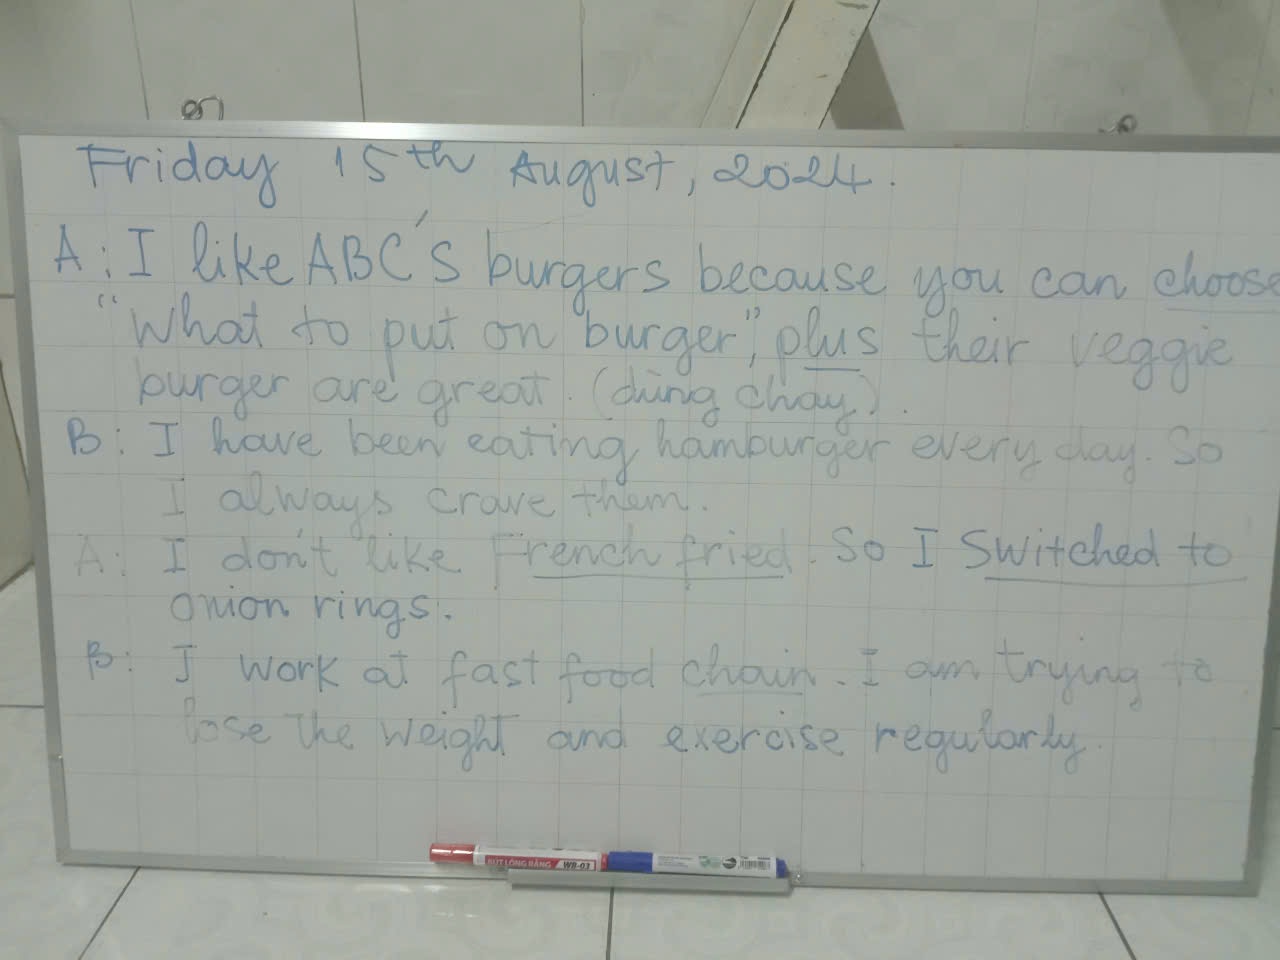 Friday 15th August, 2024.
A: I like ABC's burgers because you can choose
"What to put on burger", plus their veggie
burger are great. (dùng chay).
B: I have been eating hamburger every day. So
I always crave them.
A: I don't like French fried. So I switched to
onion rings.
B: I work at fast food chain. I am trying to
lose the weight and exercise regularly.
BÚT LÔNG BẢNG WB-03